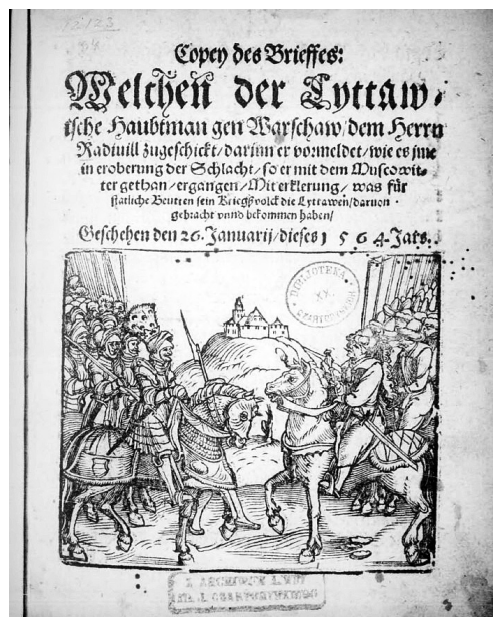 Copey des Brieffes:
Welchen der Lyttaw-
ische Haubtman gen Warschaw/dem Herrn
Radiuill zugeschickt/darinn er vormeldet/wie es jme
in eroberung der Schlacht/so er mit dem Muscowit-
ter gethan/ergangen/Mit erklerung/was für
statliche Beutten sein Kriegßvolck die Lyttawen/daruon
gebracht vnnd bekommen haben/
Geschehen den 26. Januarij/dieses 1564. Jars.
BIBLIOTEKA
XX.
CZARTORYSKICH